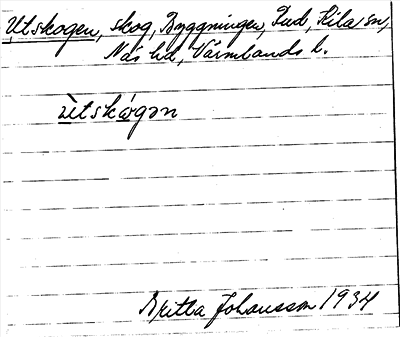 Utskogen, skog, Byggningen, Dud, Kila sn,
Näs hd, Värmlands l.
ùtskógən
Britta Johansson 1934